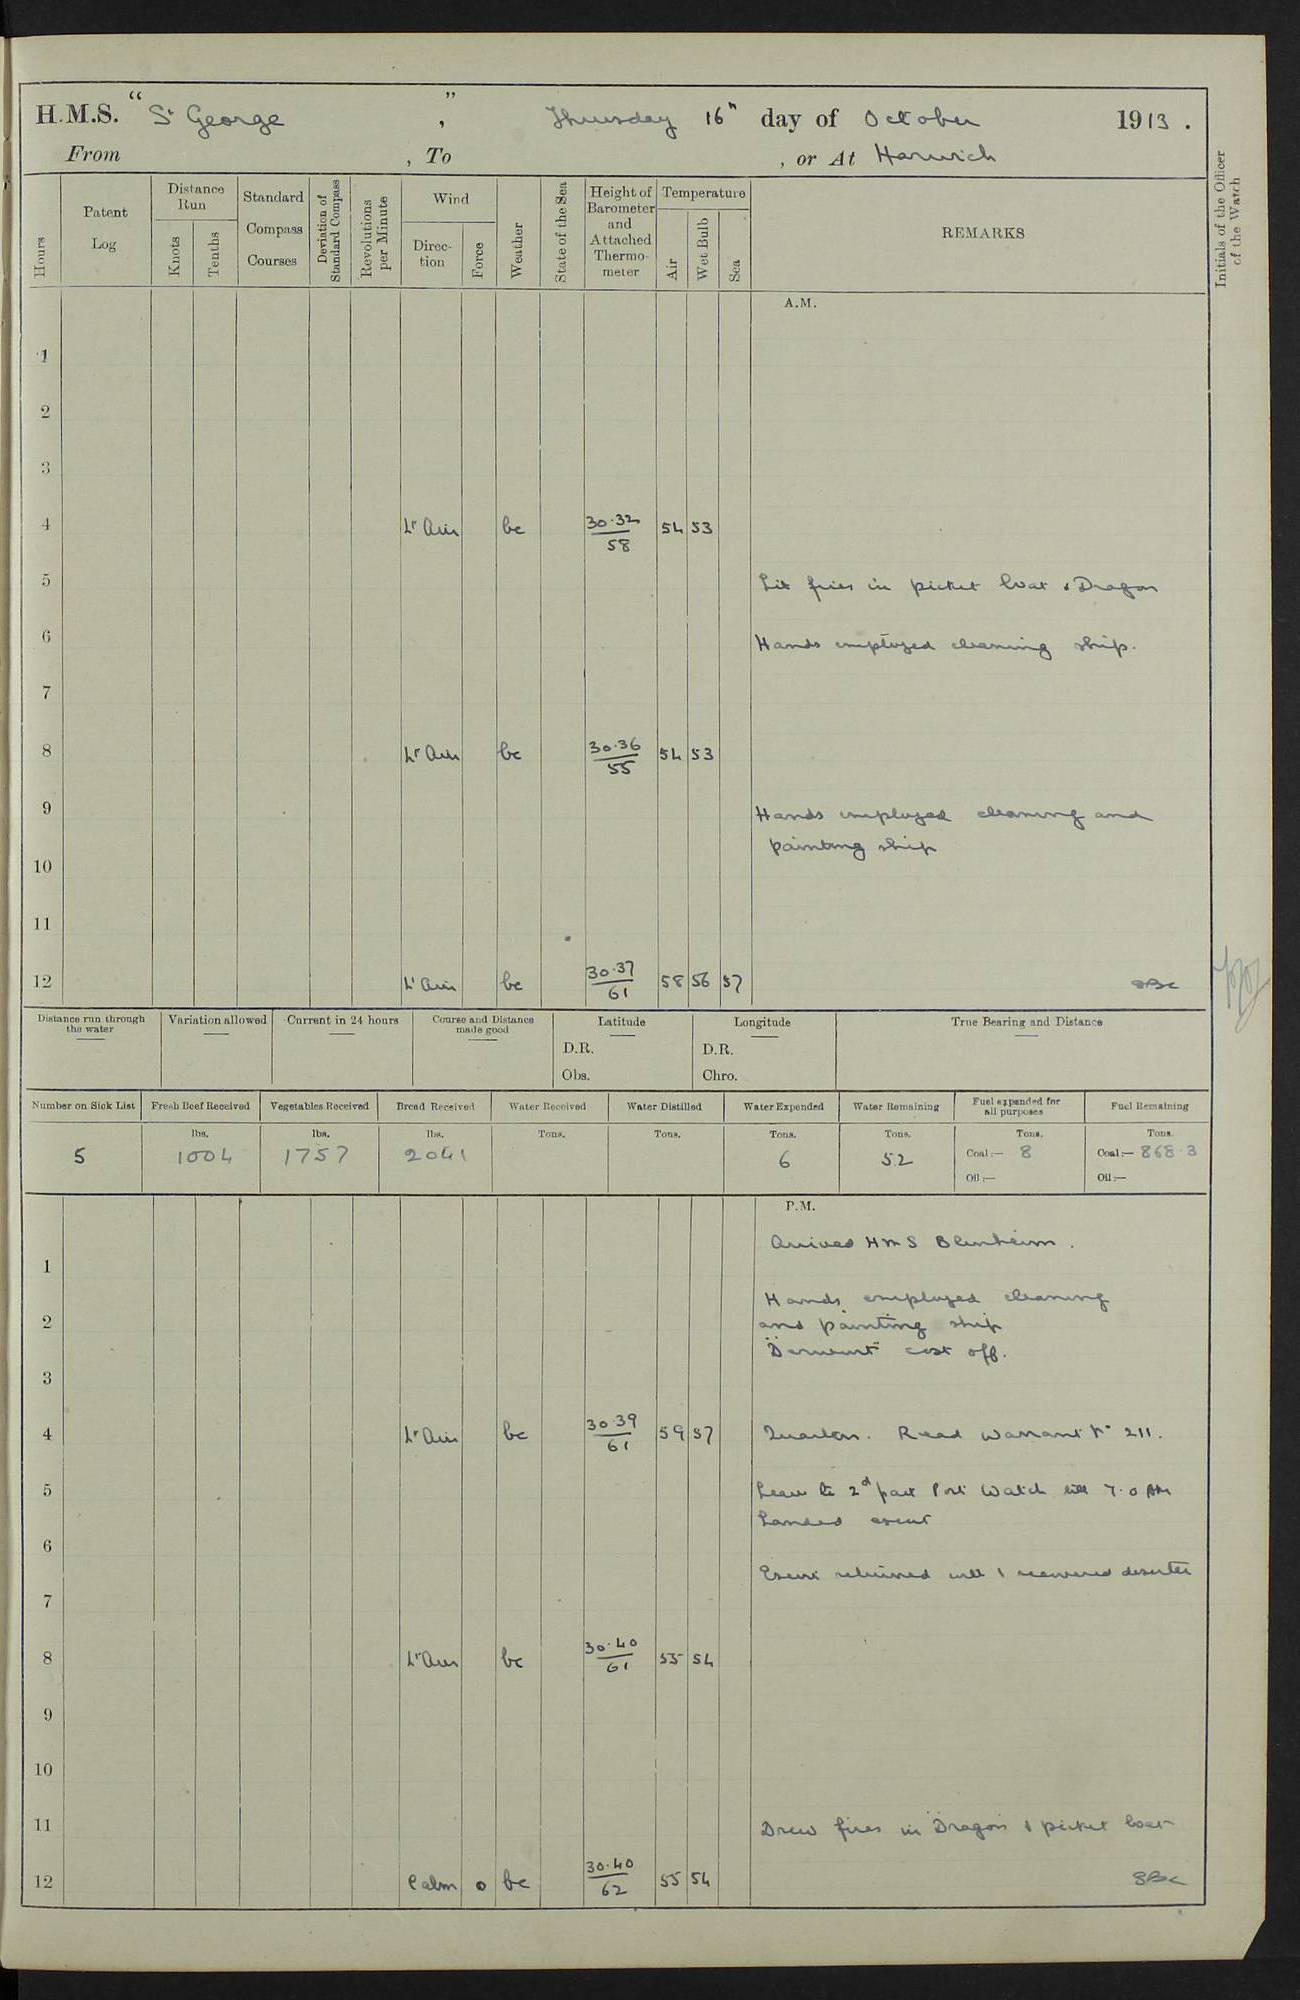 H.M.S. "St George", Thursday 16th day of October 1913.
From , To , or At Harwich
Hours
Patent Log
Distance Run
Knots
Tenths
Standard Compass Courses
Deviation of Standard Compass
Revolutions per Minute
Wind
Direction
Force
Weather
State of the Sea
Height of Barometer and Attached Thermometer
Temperature
Air
Wet Bulb
Sea
REMARKS
Initials of the Officer of the Watch
A.M.
1
2
3
4 Lt Airs bc 30.32 58 54 53
5 Lit fires in picket boat & Dragon
6 Hands employed cleaning ship.
7
8 Lt Airs bc 30.36 55 54 53
9 Hands employed cleaning and
painting ship
10
11
12 Lt Airs bc 30.37 61 58 56 57
Distance run through the water
Variation allowed
Current in 24 hours
Course and Distance made good
Latitude
D.R.
Obs.
Longitude
D.R.
Chro.
True Bearing and Distance
Number on Sick List
Fresh Beef Received
Vegetables Received
Bread Received
Water Received
Water Distilled
Water Expended
Water Remaining
Fuel expended for all purposes
Fuel Remaining
5
lbs. 1004
lbs. 1757
lbs. 2041
Tons.
Tons.
Tons. 6
Tons. 52
Tons. Coal:— 8
Oil:—
Tons. Coal:— 868.3
Oil:—
P.M.
Arrived HMS Blenheim.
1
Hands employed cleaning
2 and painting ship
"Derwent" cast off.
3
4 Lt Airs bc 30.39 61 59 57 Quarters. Read Warrant No 211.
5 Leave to 2nd part Port Watch till 7.0 AM
Landed escort
6
Escort returned with 1 recovered deserter
7
8 Lt Airs bc 30.40 61 55 54
9
10
11 Drew fires in "Dragon" & picket boat
12 Calm 0 bc 30.40 62 55 54